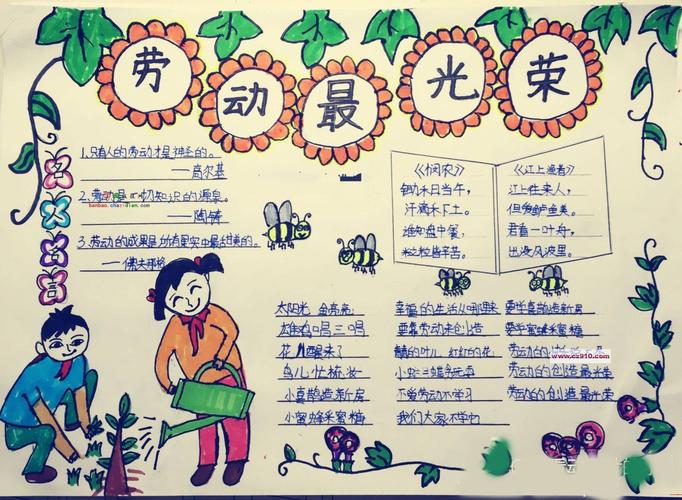 劳动最光荣
名人名言
1.只有人的劳动才是神圣的。
——高尔基
2.劳动是一切知识的源泉。
banbao.chazidian.com
——陶铸
3.劳动的成果是所有果实中最甜美的。
《悯农》
锄禾日当午,
汗滴禾下土。
谁知盘中餐,
粒粒皆辛苦。
《江上渔者》
江上往来人,
但爱鲈鱼美。
君看一叶舟,
出没风波里。
太阳光 金亮亮,
雄鸡唱三唱
花儿醒来了
鸟儿忙梳妆
小喜鹊造新房
小蜜蜂采蜜糖
幸福的生活从哪里来
要靠劳动来创造
青青的叶儿 红红的花
小蝴蝶贪玩耍
不爱劳动不学习
我们大家不学它
要学喜鹊造新房
要学蜜蜂采蜜糖
劳动的
www.cz910.com
劳动的创造最光荣
劳动的创造最光荣